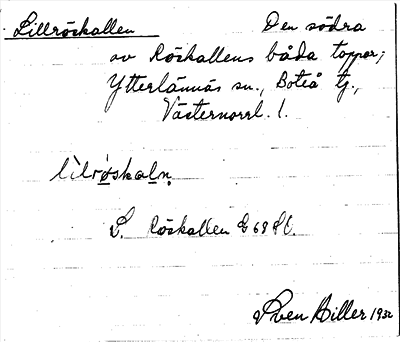 Lillröskallen Den södra
av Röskallens båda toppar;
Ytterlännäs sn., Boteå tg.,
Västernorrl. l.
lìlrø̀skaln.
L. Röskallen G 68
Sven Hiller 1932